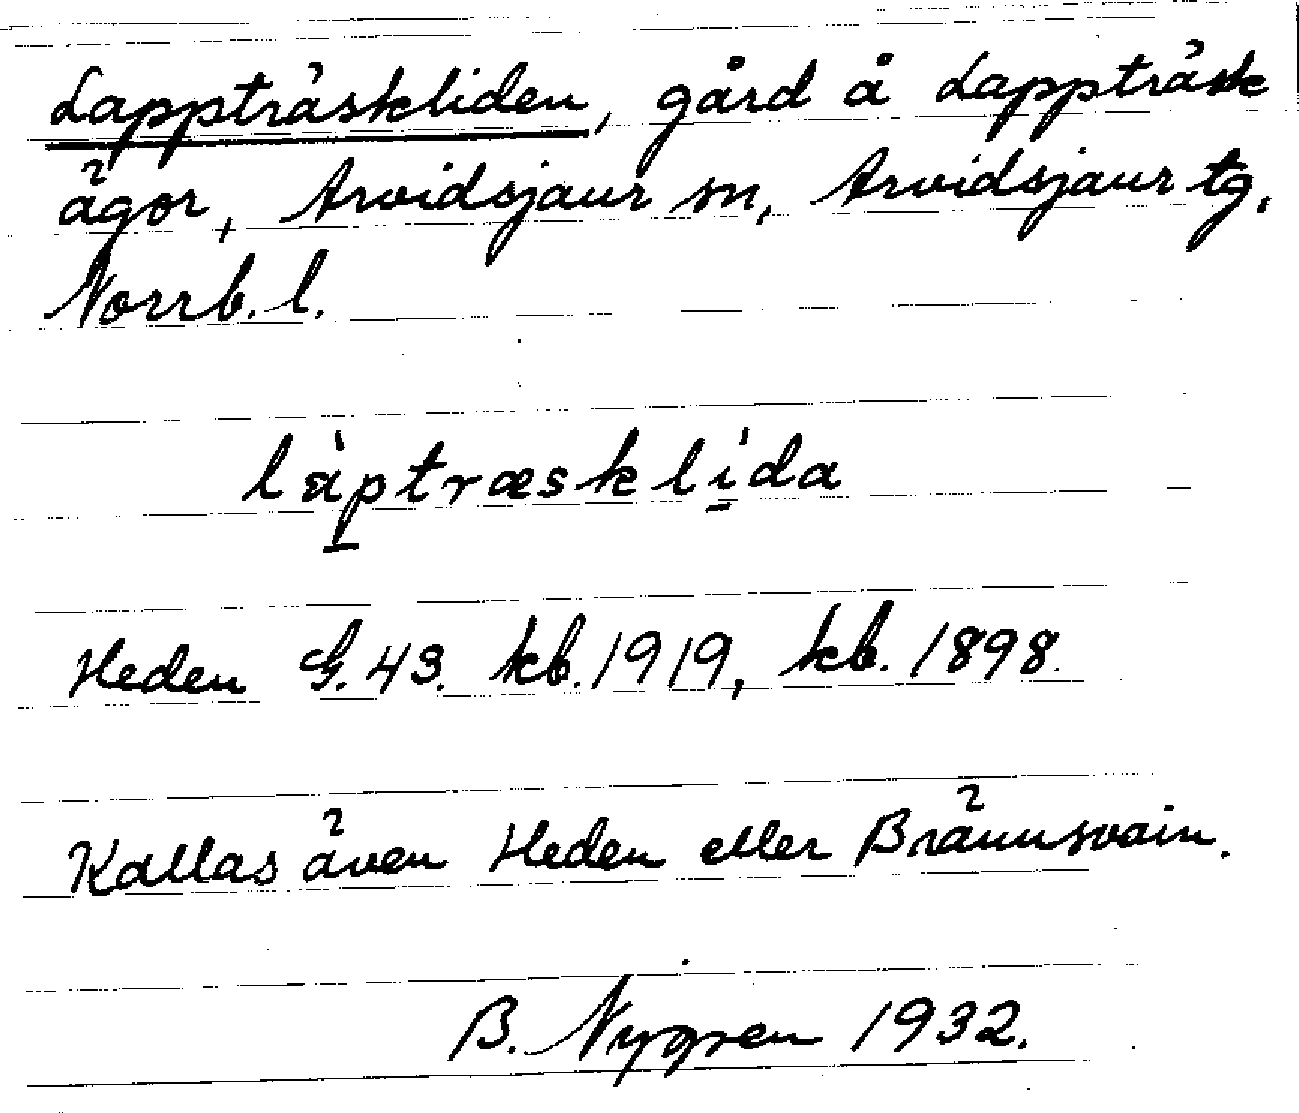 Lappträskliden, gård å Lappträsk
ägor, Arvidsjaur sn, Arvidsjaur tg,
Norrb. l.
làptræsklída
Heden G. 43. kb. 1919, kb. 1898.
Kallas även Heden eller Brännsvain.
B. Nygren 1932.